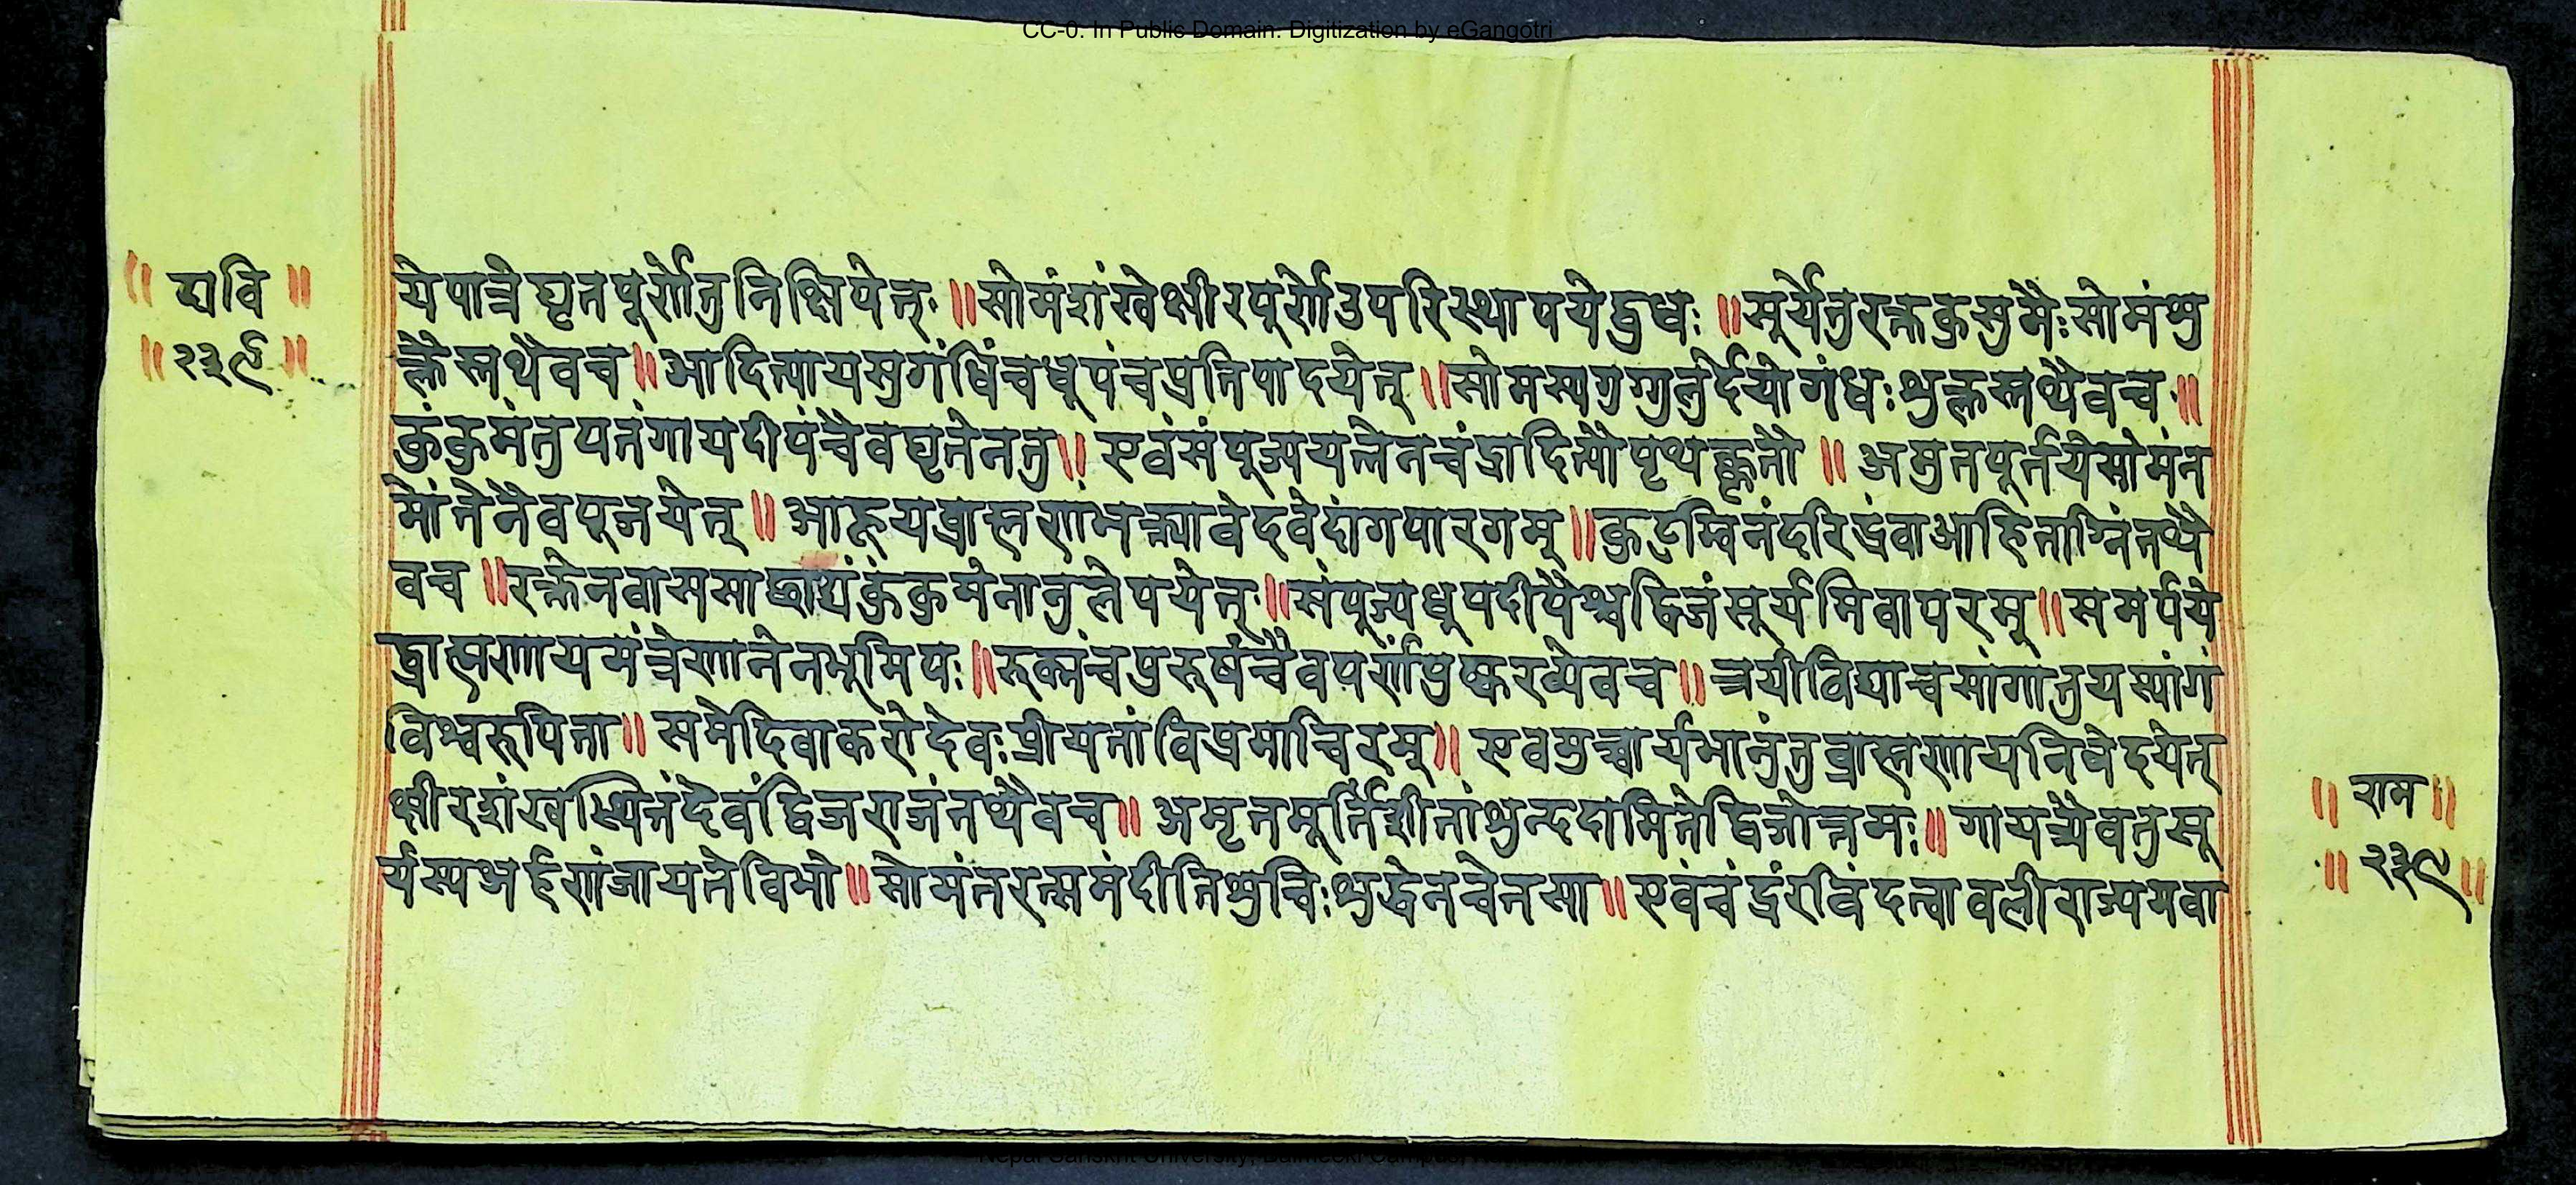 CC-0. In Public Domain. Digitization by eGangotri
॥ द्यवि ॥
॥ २३९ ॥
येपात्रे घृतपूर्णेतु निक्षिपेत् ॥ सोमंशंखेक्षीरपूर्णेउपरिस्थापयेद्बुधः ॥ सूर्येतुरक्तकुसुमैः सोमंशु
क्लैस्तथैवच ॥ आदित्यायसुगंधिंचधूपंचप्रतिपादयेत् ॥ सोमस्यगुग्गुलुर्देयोगंधःशुक्लस्तथैवच ॥
कुंकुमंतुपतंगायदीपंचैवघृतेनतु ॥ एवंसंपूज्ययत्नेनचंद्रादित्यौपृथक्कृतौ ॥ अमुनपूर्तयेसोमंन
मोंतेनैवपूजयेत् ॥ आहूयब्राह्मणांभक्त्यावेदवेदांगपारगम् ॥ कुटुम्बिनंदरिद्रंवाआहिताग्निंतथै
वच ॥ रक्तेनवाससाछाद्यंकुंकुमेनानुलेपयेत् ॥ संपूज्यधूपदीपैश्चद्विजंसूर्यमिवापरम् ॥ समर्पये
द्ब्राह्मणायमंत्रेणानेनभूमिपः ॥ रुक्मंचपुरुषंचैवपर्णंपुष्करव्येवच ॥ त्रयीविद्याचसांगातुयस्यांगं
विश्वरुपिता ॥ समेदिवाकरोदेवःप्रीयतांविप्रमाचिरम् ॥ एवमुच्चार्यभानुंतुब्राह्मणायनिवेदयेत्
क्षीरशंखस्थितंदैवंद्विजराजंतथैवच ॥ अमृतमूर्तिंशीतांशुन्ददामितेद्विजोत्तमः ॥ गायत्र्यैवतुसू
र्यस्यअर्हणांजायतेविभो ॥ सोमंतरत्समंदीतिशुचिःशुद्धेनचेतसा ॥ एवंचंद्रंरविंदत्वावलीराज्यमवा
॥ राम ॥
॥ २३९ ॥